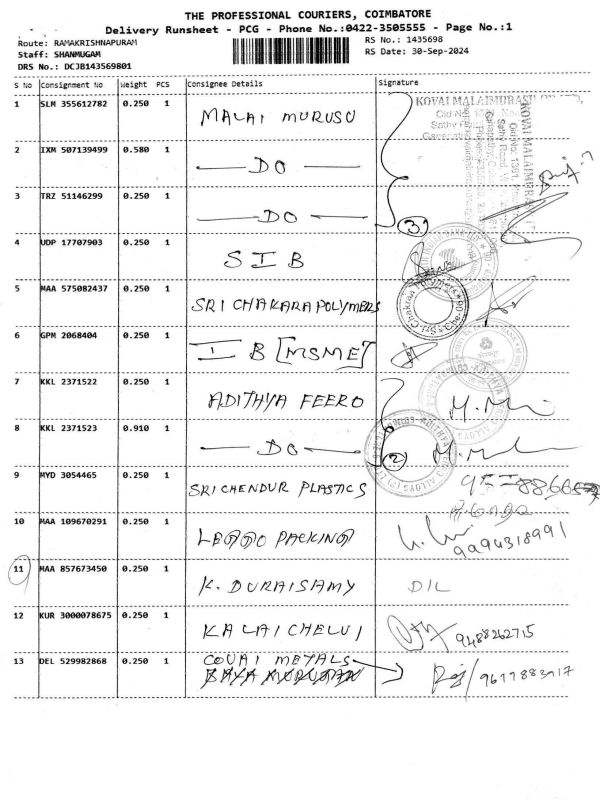 THE PROFESSIONAL COURIERS, COIMBATORE
Delivery Runsheet - PCG - Phone No.:0422-3505555 - Page No.:1
Route: RAMAKRISHNAPURAM
Staff: SHANMUGAM
DRS No.: DCJB143569801
RS No.: 1435698
RS Date: 30-Sep-2024
S No Consignment No Weight PCS Consignee Details Signature
1 SLM 355612782 0.250 1 MALAI MURUSU
KOVAI MALAIMURASU
2 IXM 507139499 0.580 1 — DO —
3 TRZ 51146299 0.250 1 — DO — 3
4 UDP 17707903 0.250 1 SIB
5 MAA 575082437 0.250 1 SRI CHAKARA POLYMERS
6 GPM 2068404 0.250 1 IB [MSME]
7 KKL 2371522 0.250 1 ADITHYA FEERO
8 KKL 2371523 0.910 1 — DO — 2
9 MYD 3054465 0.250 1 SRI CHENDUR PLASTICS
10 MAA 109670291 0.250 1 PACKING 9994318991
11 MAA 857673450 0.250 1 K. DURAISAMY D/L
12 KUR 3000078675 0.250 1 KALAICHELVI 9488262715
13 DEL 529982868 0.250 1 COVAI METALS